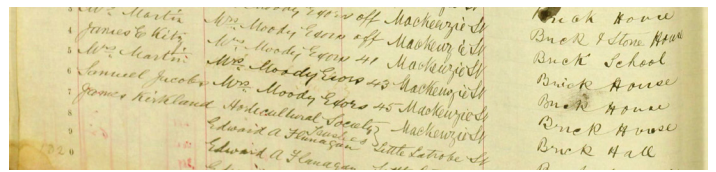 3 Mrs Martin Mrs Moody Exors off Mackenzie St Brick House
4 James C Kitz Mrs Moody Exors off Mackenzie St Brick & Stone House
5 Mrs Martin Mrs Moody Exors 41 Mackenzie St Brick School
6 Samuel Jacobs Mrs Moody Exors 43 Mackenzie St Brick House
7 James Kirkland Mrs Moody Exors 45 Mackenzie St Brick House
8 Society Trustees Mackenzie St Brick House
9 Edward A Flanagan Little Latrobe St Brick Hall
Edward A Flanagan